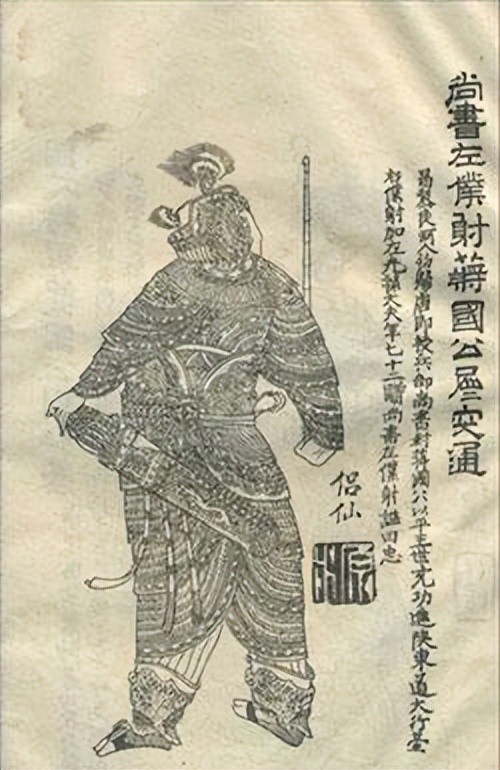 尚書左僕射蔣國公屈突通
昌黎徒河人初歸唐即授兵部尚書封蔣國公以平王世充功進陝東道大行臺
右僕射加左光祿大夫年七十二贈尚書左僕射諡曰忠
侶仙